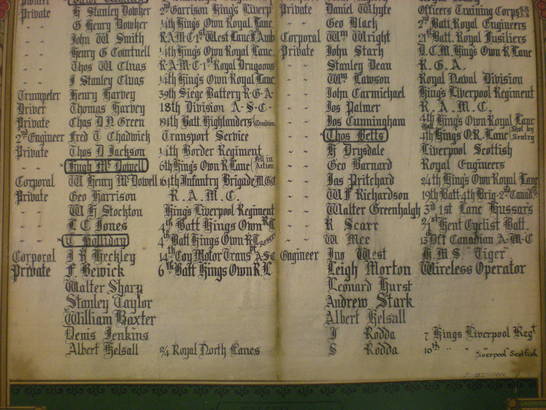 Private H Stanley Bowker 2nd Garrison Kings Liverp
" G Henry Bowker 5th Kings Own Royal Lanc
" John W Smith R.A.M.C. 1st West Lanc F Amb
" Henry G Courtnell 5th Kings Own Royal Lanc
" Thos W Cluas R-A-M-C-1st Royal Dragoons
" J Stanley Cluas 5th Kings Own Royal Lanc
Trumpeter Henry Harvey 39th Siege Battery R-G-A-
Driver Thomas Harvey 18th Division A-S-C-
Private Chas D N Green 19th Batt Highlanders
2nd Engineer Fred T Chadwick Transport Service
Private Thos D Jackson 14th Border Regiment
" Hugh Mc Dowell 6th Kings Own R Lanc Kil in Action
Corporal W Henry Mc Dowell 61st Infantry Brigade M G C
Private Geo Harrison R.A.M.C.
" W H Stockton Kings Liverpool Regiment
" L C Jones 4th Batt Kings Own R L
" T Holliday 4th Batt Kings Own R L
Corporal J R Heckley 14th Coy Motor Trans A S C
Private F Bewick 6th Batt Kings Own R L
Walter Sharp
Stanley Taylor
William Baxter
Denis Jenkins
Albert Kelsall 2/4 Royal North Lancs
Private Daniel Whyte Officers Training Corps
" Geo Black 2nd Batt Royal Engineers
Corporal Wm Wright 21st Batt Royal Fusiliers
Private John Stark D.C.M. Kings Own R Lanc
" Stanley Dean R.G.A.
" Wm Lawson Royal Naval Division
" John Carmichael Kings Liverpool Regiment
" Jos Palmer R.A.M.C.
" Jos Cunningham 4th Kings Own Royal Lanc
" Thos Betts 4th Kings O R Lanc Shot by Sentry
" H Drysdale Liverpool Scottish
" Geo Barnard Royal Engineers
" Jas Pritchard 24th Kings Own Royal Lanc
" W F Richardson 19th Batt 4th Brig 2nd Canad
" Walter Greenhalgh 3rd 1st Lanc Hussars
" R Scarr 2/1st Kent Cyclist Batt
" W Mee 13 Dft Canadian A-M-C
Engineer Jno West H M S Tiger
Leigh Morton Wireless Operator
Leonard Hurst
Andrew Stark
Albert Kelsall
J Rodda 7 Kings Liverpool Regt
S Rodda 10th " " " Liverpool Scottish